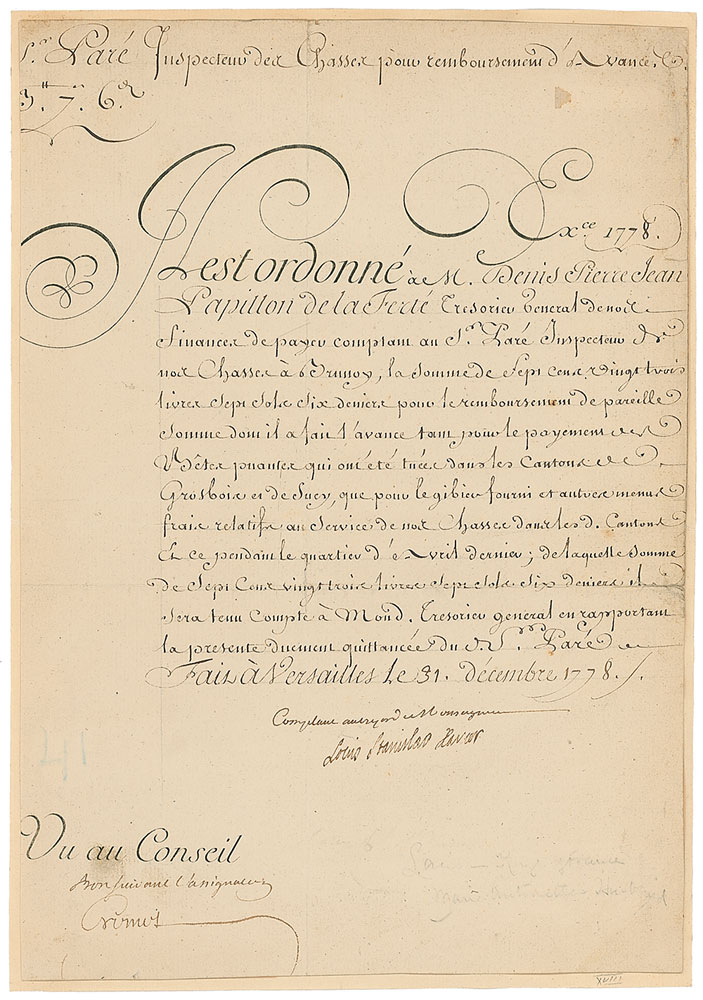 S.r Paré Inspecteur des Chasses pour remboursement d'Avance &.
3.tt 7.s 6.d
Ex.ce 1778.
Il est ordonné à M. Denis Pierre Jean
Papillon de la Ferté Tresorier General de nos
finances de payer comptant au S.r Paré Inspecteur de
nos Chasses à Brunoy, la somme de Sept cens vingt trois
livres sept sols six deniers pour le remboursement de pareille
somme dont il a fait l'avance tant pour le payement des
Bêtes puantes qui ont été tuées dans les Cantons de
Grosbois et de Sucy, que pour le gibier fourni et autres menus
frais relatifs au service de nos Chasses dans les d. Cantons
Et ce pendant le quartier d'Avril dernier; de laquelle somme
de Sept Cens vingt trois livres Sept Sols Six deniers il
sera tenu compte à Mond. Tresorier general en rapportant
la presente duement quittancée du d. S.r Paré
Fait à Versailles le 31. décembre 1778.
Comptant au tresor de Monseigneur
Louis Stanislas Xavier
41
Vu au Conseil
Bon suivant l'assignation
Cromot
Marie Antoinette
XVIII